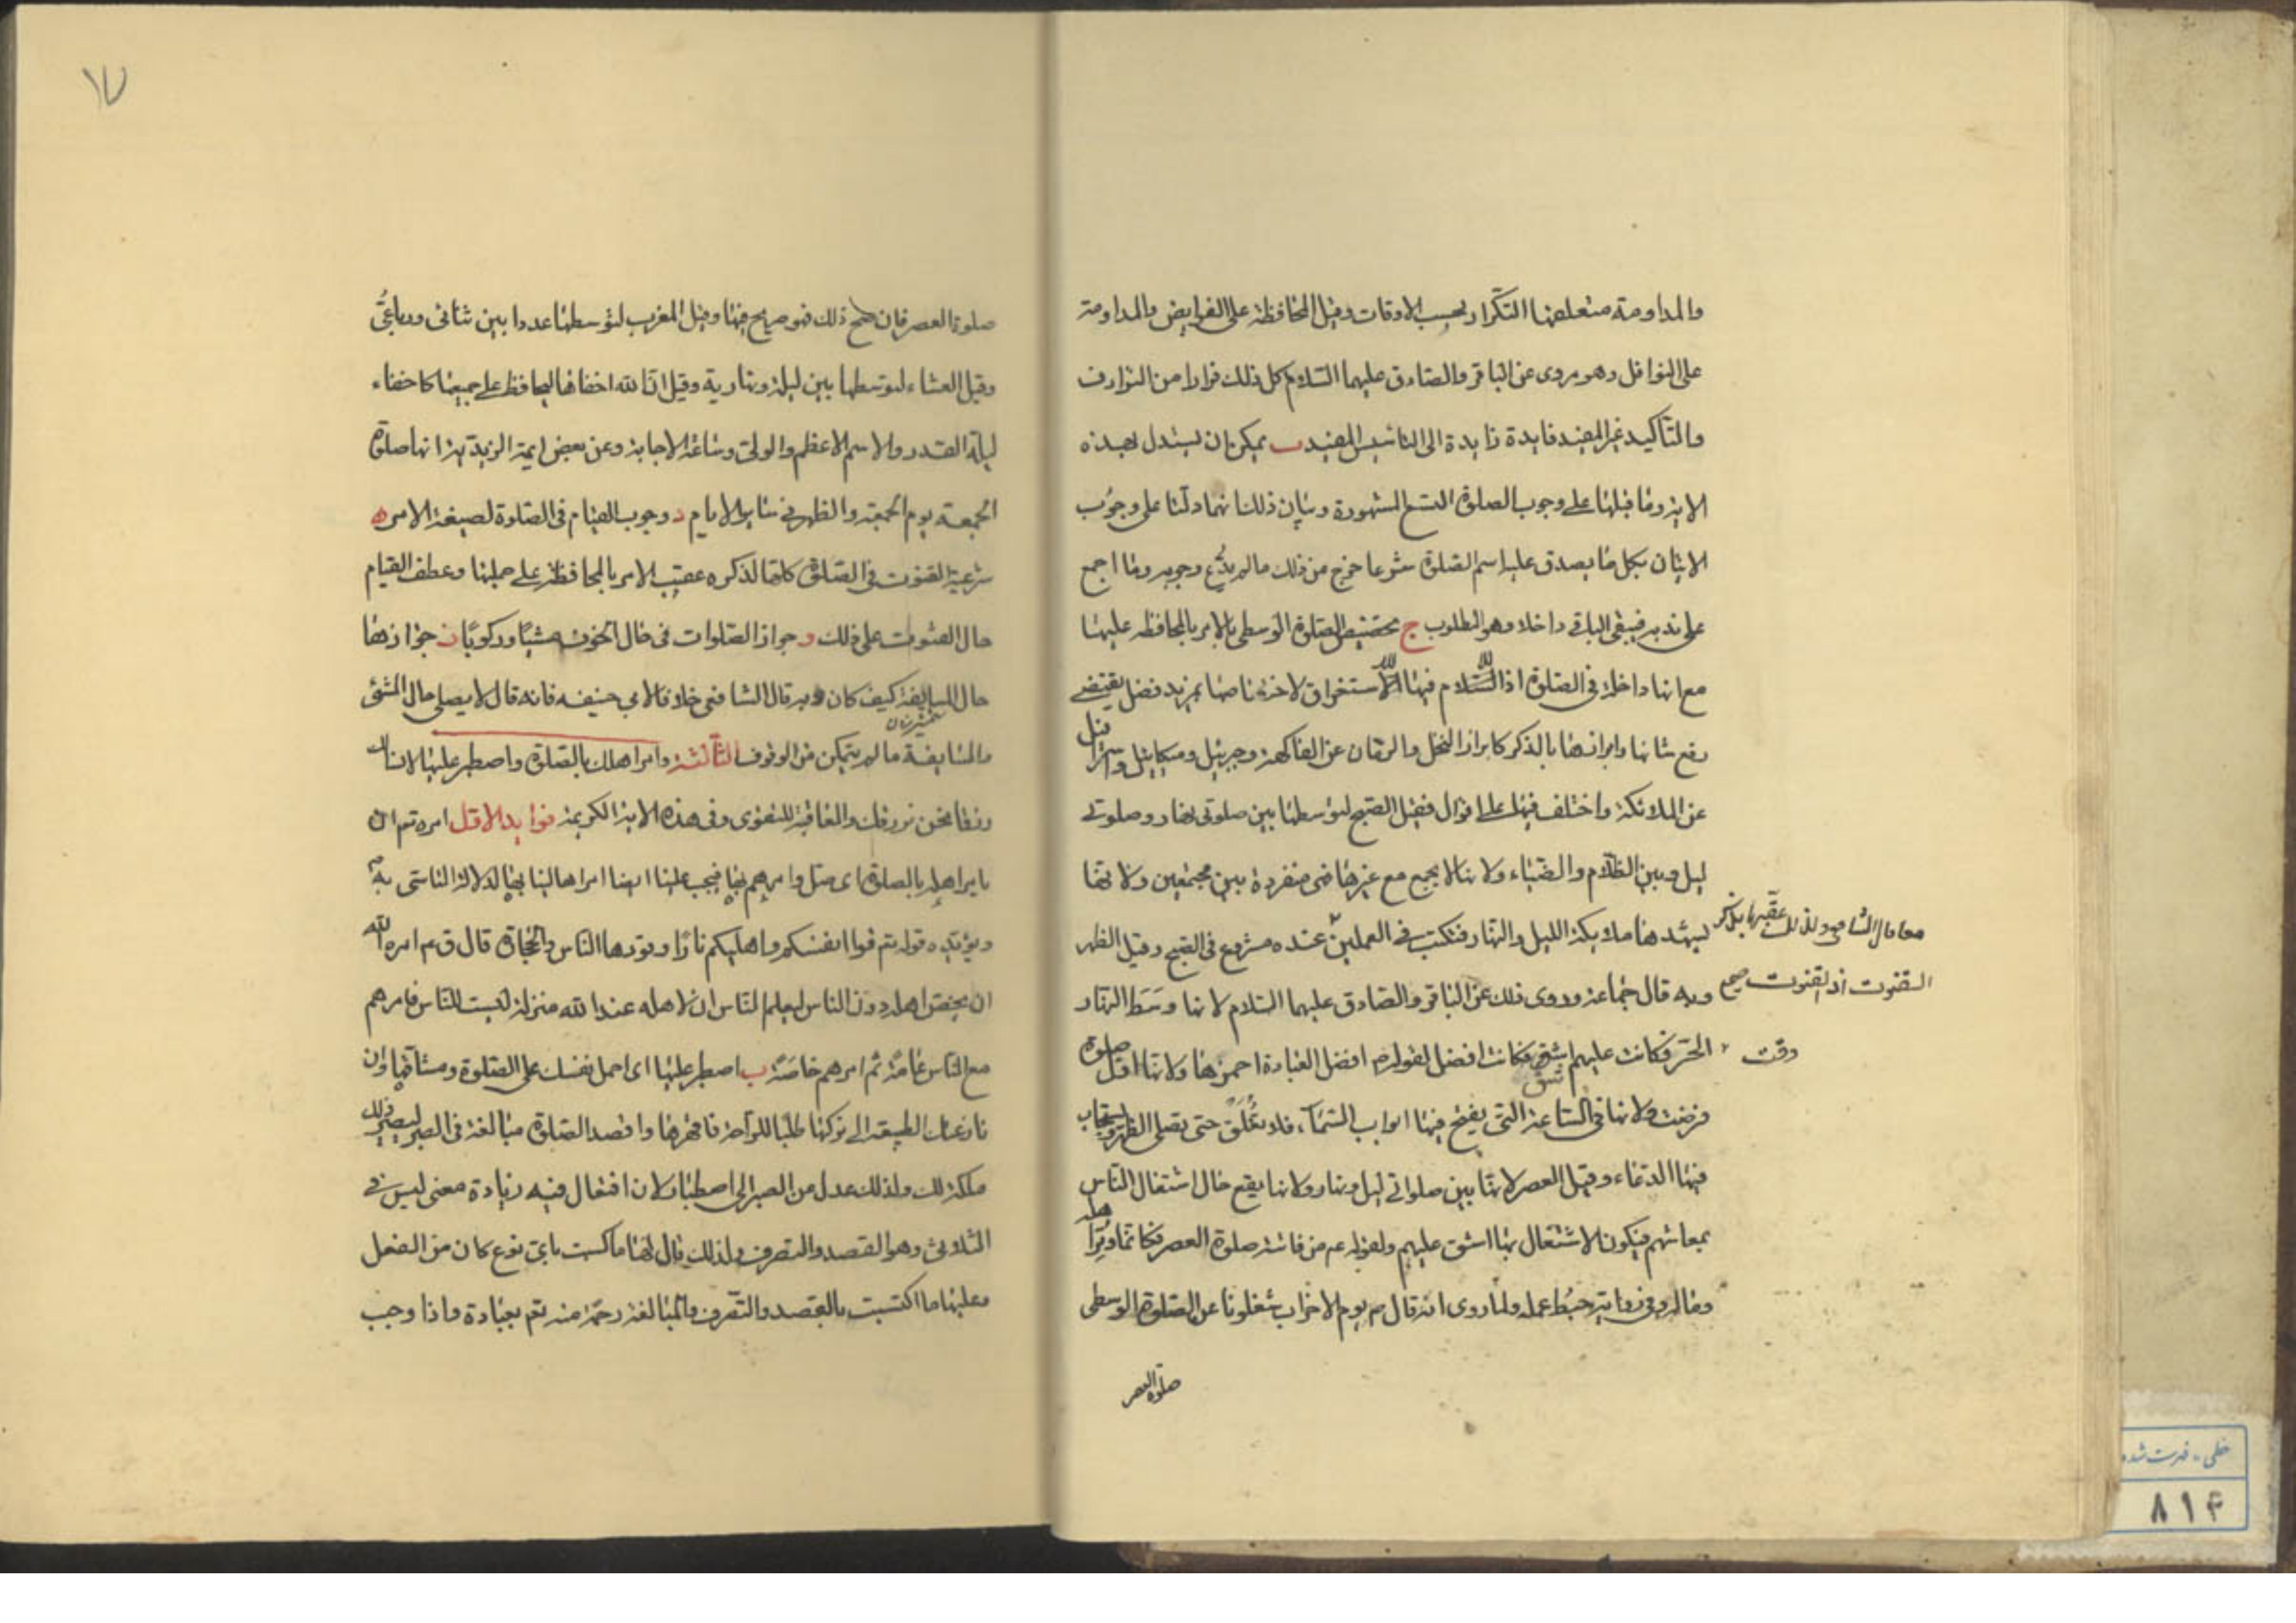 والمداومة متعلقها التكرار بحسب الاوقات وقيل المحافظة على الفرايض والمداومة
على النوافل وهو مروى عن الباقر والصادق عليهما السلام كل ذلك فرارا من الترادف
والتأكيد غير المفيد فايدة زايدة الى التاسيس المفيد ب يمكن ان يستدل بهذه
الاية وما قبلها على وجوب الصلوة التسع المشهورة وبيان ذلك انهما دلتا على وجوب
الاتيان بكل ما يصدق عليه اسم الصلوة شرعا خرج من ذلك ما لم يدّع وجوبه وما اجمع
على ندبه فيبقى الباقى داخلا وهو المطلوب ج تخصيص الصلوة الوسطى بالامر بالمحافظة عليها
مع انها داخلة فى الصلوة اذ اللام فيها للاستغراق لاختصاصها بمزيد فضل يقتضى
رفع شانها وابرازها بالذكر كابراز النخل والرمان عن الفاكهة وجبرئيل وميكائيل واسرافيل
عن الملائكة واختلف فيها على اقوال فقيل الصبح لتوسطها بين صلوتى نهار وصلوتى
ليل وبين الظلام والضياء ولانها لا يجمع مع غيرها فهى منفردة بين مجتمعين ولانها
ليشهدها ملائكة الليل والنهار فتكتب فى العملين عنده مشروع فى الصبح وقيل الظهر
وبه قال جماعة وروى ذلك عن الباقر والصادق عليهما السلام لانها وسط النهار
الحر فكانت عليهم اشق فكانت افضل لقوله ص افضل العبادة احمزها ولانها اول صلوة
فرضت ولانها فى الساعة التى يفتح فيها ابواب السماء فلا تغلق حتى يصلى الظهر ويستجاب
فيها الدعاء وقيل العصر لانها بين صلواتى ليل ونهار ولانها يقع حال اشتغال الناس
بمعاشهم فيكون الاشتغال بها اشق عليهم ولقوله عم من فاتته صلوة العصر فكانما وتر اهله
وماله وفى رواية حبط عمله ولما روى انه قال ص يوم الاحزاب شغلونا عن الصلوة الوسطى
صلوة العصر
معا قال الشافعى ولذلك عقبها بذكر
القنوت اذ القنوت صح
وقت
١٧
صلوة العصر فان صح ذلك فهو صريح فيها وقيل المغرب لتوسطها عددا بين ثنائى ورباعى
وقيل العشاء لتوسطها بين ليلة ونهارية وقيل ان الله اخفاها ليحافظ على جميعها كاخفاء
ليلة القدر والاسم الاعظم والولى وساعة الاجابة وعن بعض ايمة الزيدية انها صلوة
الجمعة يوم الجمعة والظهر فى ساير الايام د وجوب القيام فى الصلوة لصيغة الامر ه
شرعية القنوت فى الصلوة كلها لذكره عقيب الامر بالمحافظة على جملتها وعطف القيام
حال القنوت على ذلك و جواز الصلوات فى حال الخوف مشيا وركوبا ز جوازها
حال المسايفة كيف كان وبه قال الشافعى خلافا لابى حنيفه فانه قال لا يصلى حال المشى
والمسايفة ما لم يتمكن من الوقوف الثالثة وامر اهلك بالصلوة واصطبر عليها لا نسالك
رزقا نحن نرزقك والعاقبة للتقوى وفى هذه الاية الكريمة فوايد الاول امره تع ان
يامر اهله بالصلوة اى صل وامرهم بها فيجب علينا ايضا امر اهالينا بها لدلالة التاسى به
ويؤيده قوله تع قوا انفسكم واهليكم نارا وقودها الناس والحجارة قال ق عم امره الله
ان يخص اهله دون الناس ليعلم الناس ان لاهله عند الله منزلة ليست للناس فامرهم
مع الناس عامة ثم امرهم خاصة ب اصطبر عليها اى احمل نفسك على الصلوة ومشاقها وان
نازعتك الطبيعة الى تركها طلبا للراحة فاقهرها واقصد الصلوة مبالغة فى الصبر ليصير ذلك
ملكة لك ولذلك عدل عن الصبر الى اصطبار لان افتعال فيه زيادة معنى ليس فى
الثلاثى وهو القصد والتصرف ولذلك قال لها ما كسبت باى نوع كان من الفعل
وعليها ما اكتسبت بالقصد والتصرف والمبالغة رحمة منه تع بعباده واذا وجب
خطى - فهرست شده
٨١۴